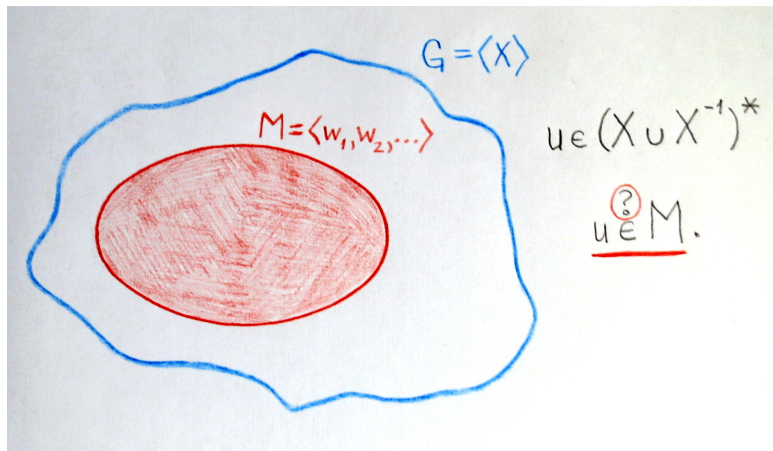 G = ⟨X⟩
M = ⟨w₁, w₂, ...⟩
u ∈ (X ∪ X⁻¹)*
?
u ∈ M.